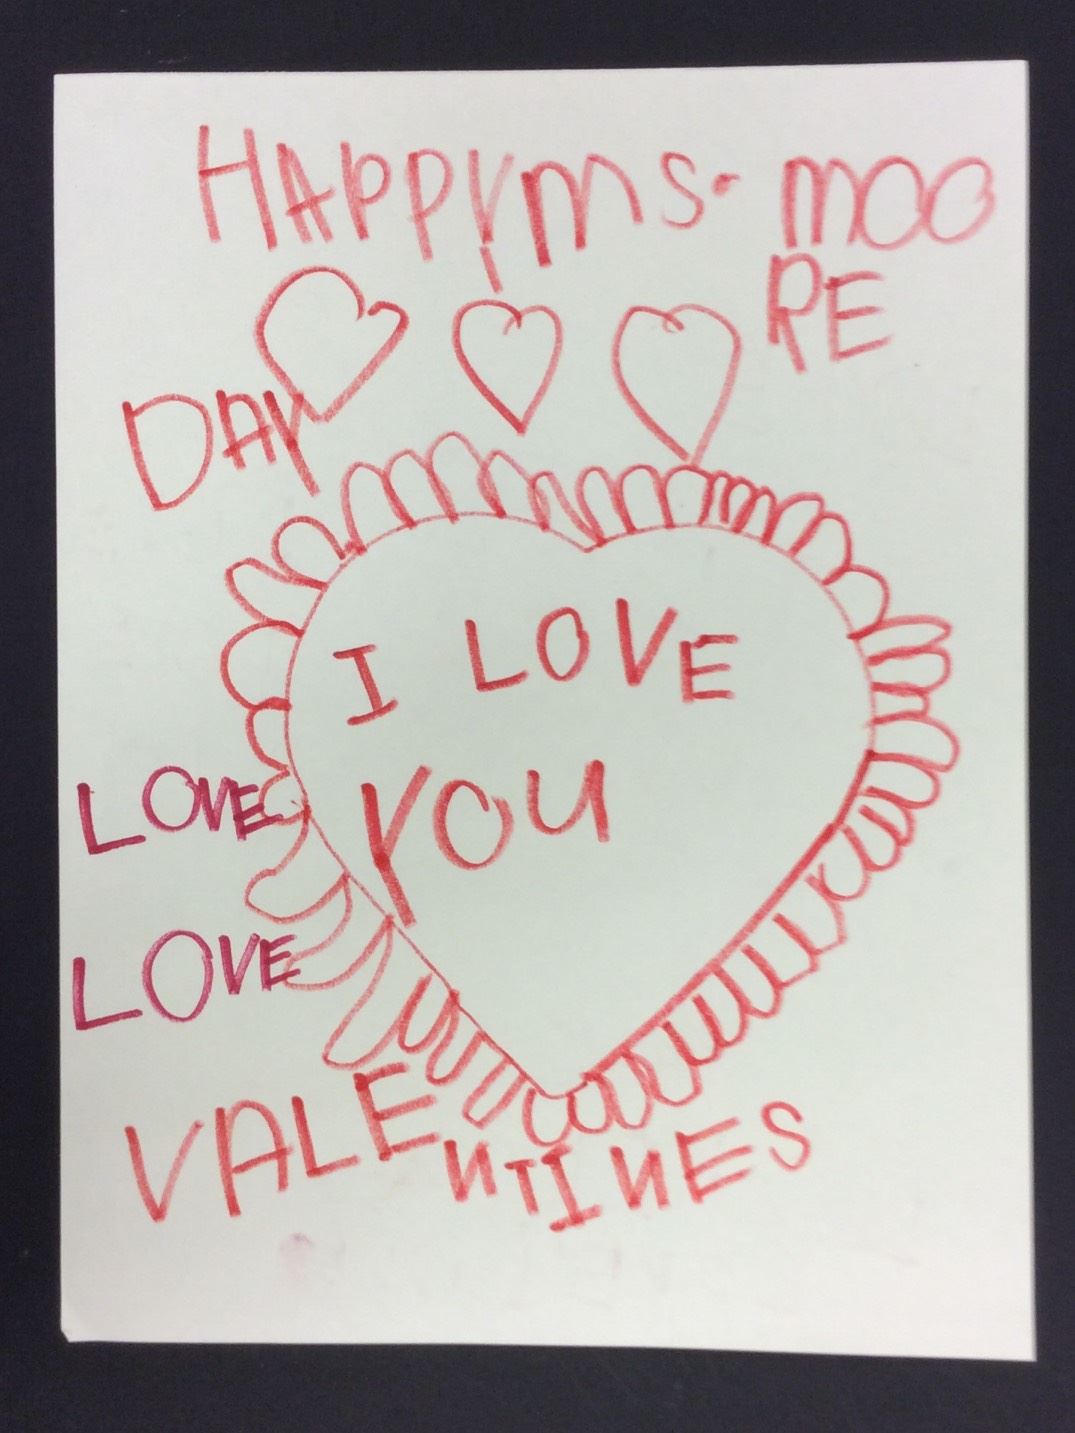 HAPPY MS. MOO
RE
DAY
I LOVE
YOU
LOVE
LOVE
VALENTINES